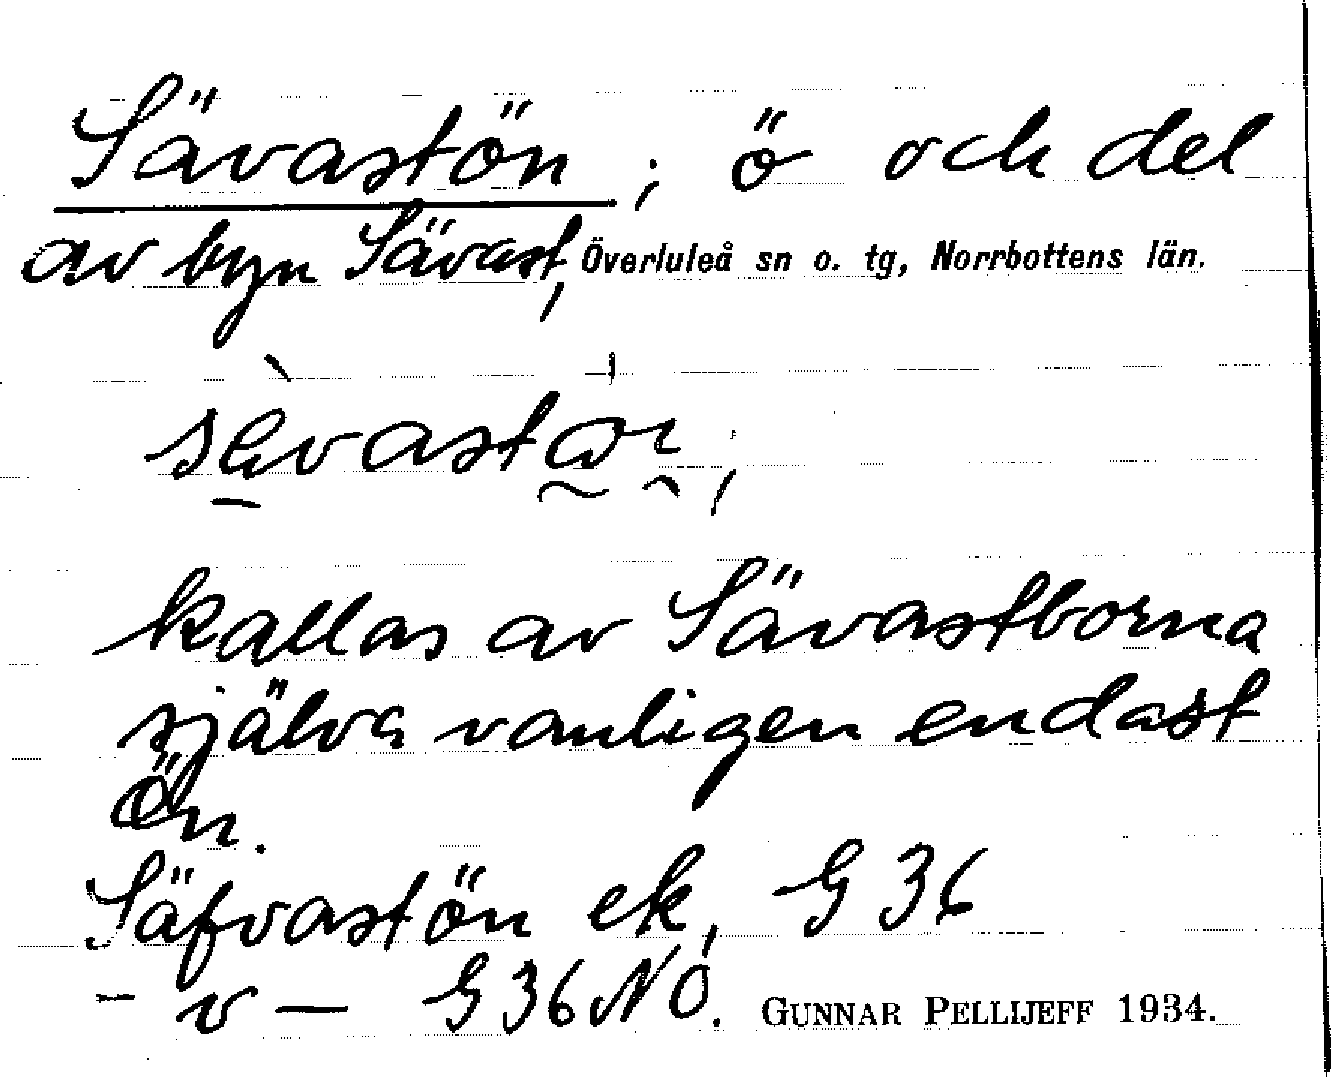 Sävastön ; ö och del
av byn Sävast, Överluleå sn o. tg, Norrbottens län.
kallas av Sävastborna
själva vanligen endast
Ön.
Säfvastön ek, G 36
- v — G 36 NO. GUNNAR PELLIJEFF 1934.